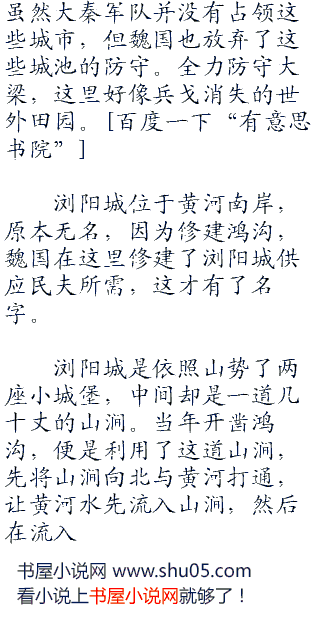 虽然大秦军队并没有占领这
些城市，但魏国也放弃了这
些城池的防守。全力防守大
梁，这里好像兵戈消失的世
外田园。[百度一下“有意思
书院”]
浏阳城位于黄河南岸，
原本无名，因为修建鸿沟，
魏国在这里修建了浏阳城供
应民夫所需，这才有了名
字。
浏阳城是依照山势了两
座小城堡，中间却是一道几
十丈的山涧。当年开凿鸿
沟，便是利用了这道山涧，
先将山涧向北与黄河打通，
让黄河水先流入山涧，然后
在流入
书屋小说网 www.shu05.com
看小说上书屋小说网就够了！